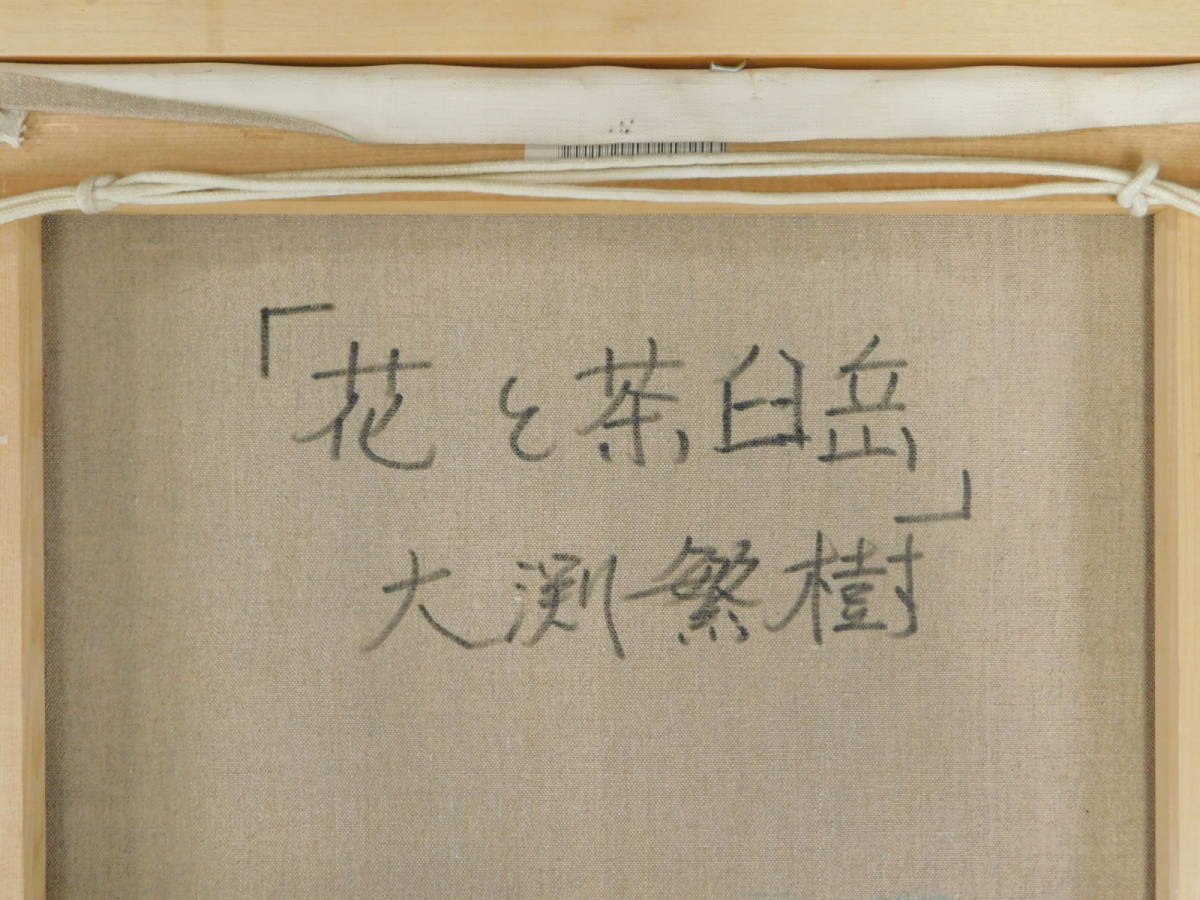 「花と茶臼岳」
大渕繁樹